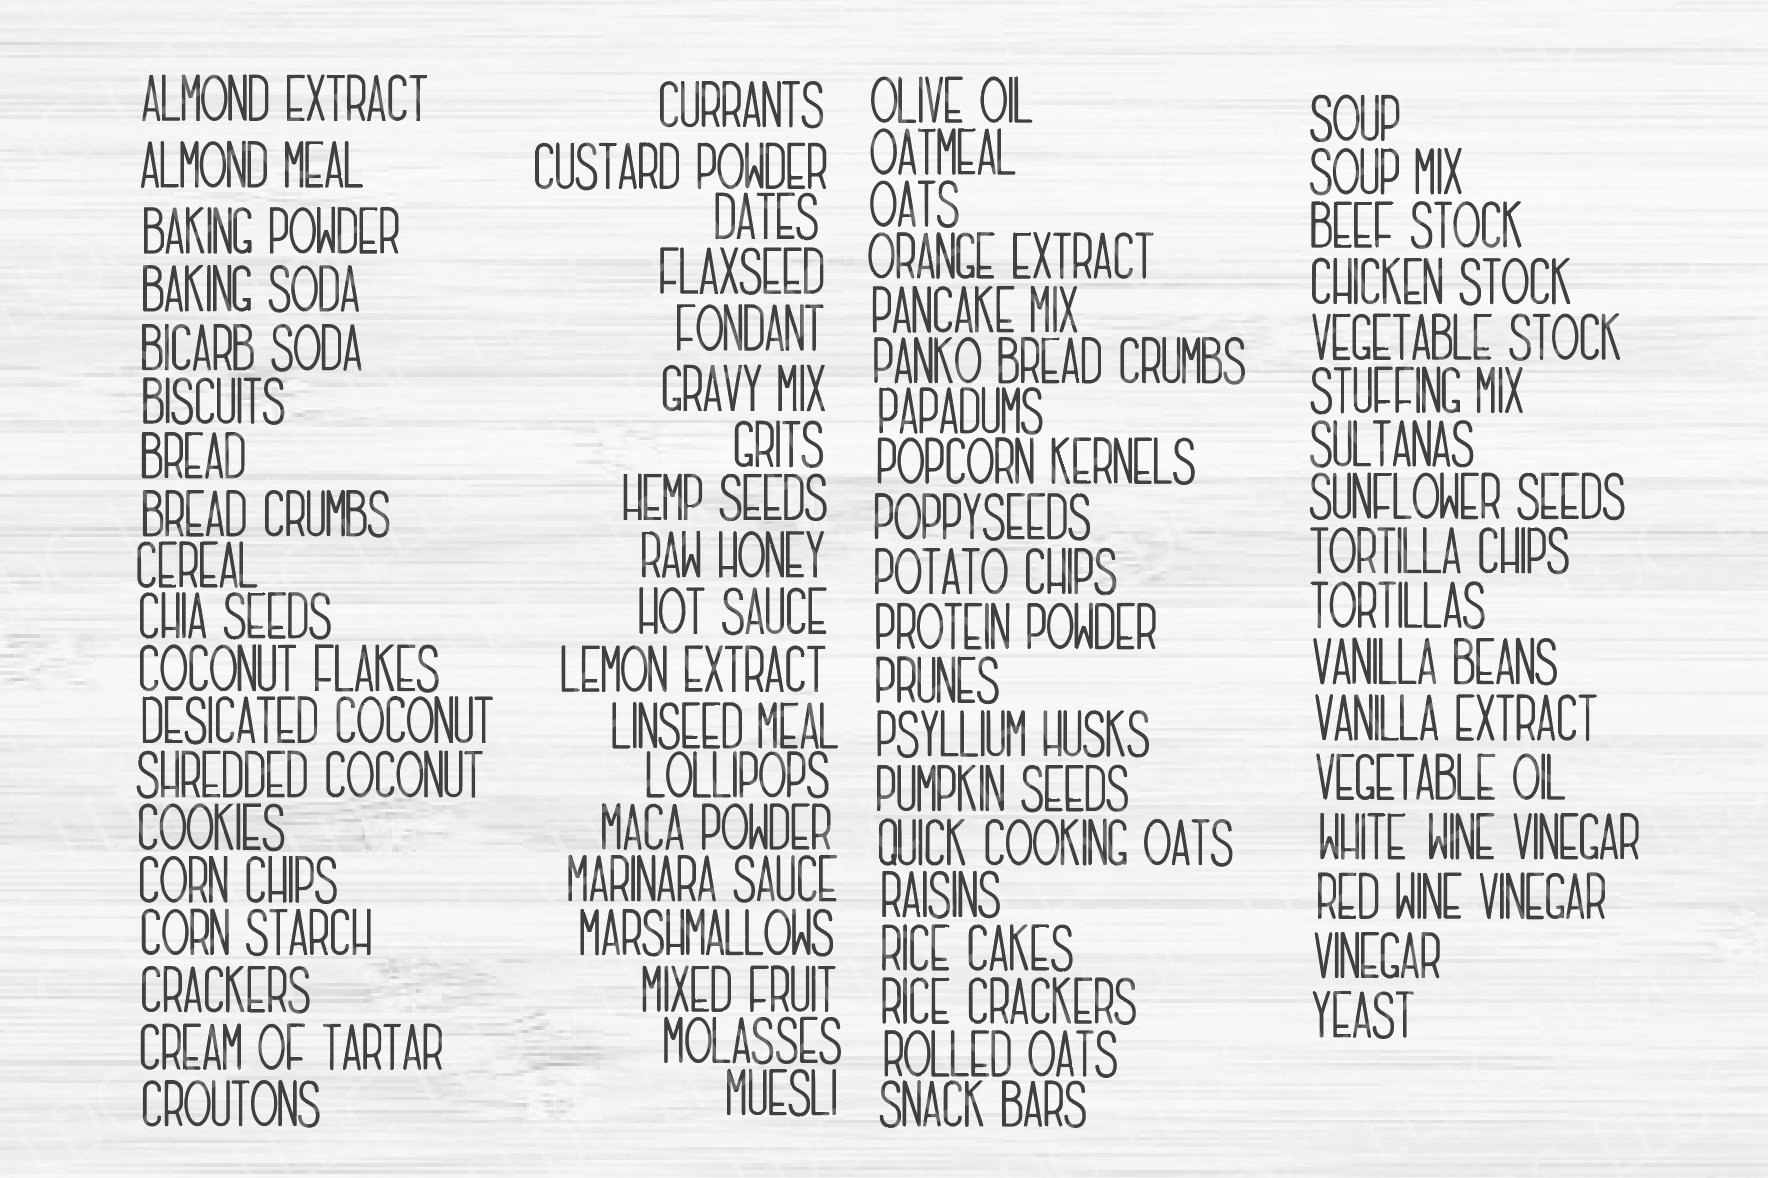 ALMOND EXTRACT
ALMOND MEAL
BAKING POWDER
BAKING SODA
BICARB SODA
BISCUITS
BREAD
BREAD CRUMBS
CEREAL
CHIA SEEDS
COCONUT FLAKES
DESICATED COCONUT
SHREDDED COCONUT
COOKIES
CORN CHIPS
CORN STARCH
CRACKERS
CREAM OF TARTAR
CROUTONS
CURRANTS
CUSTARD POWDER
DATES
FLAXSEED
FONDANT
GRAVY MIX
GRITS
HEMP SEEDS
RAW HONEY
HOT SAUCE
LEMON EXTRACT
LINSEED MEAL
LOLLIPOPS
MACA POWDER
MARINARA SAUCE
MARSHMALLOWS
MIXED FRUIT
MOLASSES
MUESLI
OLIVE OIL
OATMEAL
OATS
ORANGE EXTRACT
PANCAKE MIX
PANKO BREAD CRUMBS
PAPADUMS
POPCORN KERNELS
POPPYSEEDS
POTATO CHIPS
PROTEIN POWDER
PRUNES
PSYLLIUM HUSKS
PUMPKIN SEEDS
QUICK COOKING OATS
RAISINS
RICE CAKES
RICE CRACKERS
ROLLED OATS
SNACK BARS
SOUP
SOUP MIX
BEEF STOCK
CHICKEN STOCK
VEGETABLE STOCK
STUFFING MIX
SULTANAS
SUNFLOWER SEEDS
TORTILLA CHIPS
TORTILLAS
VANILLA BEANS
VANILLA EXTRACT
VEGETABLE OIL
WHITE WINE VINEGAR
RED WINE VINEGAR
VINEGAR
YEAST